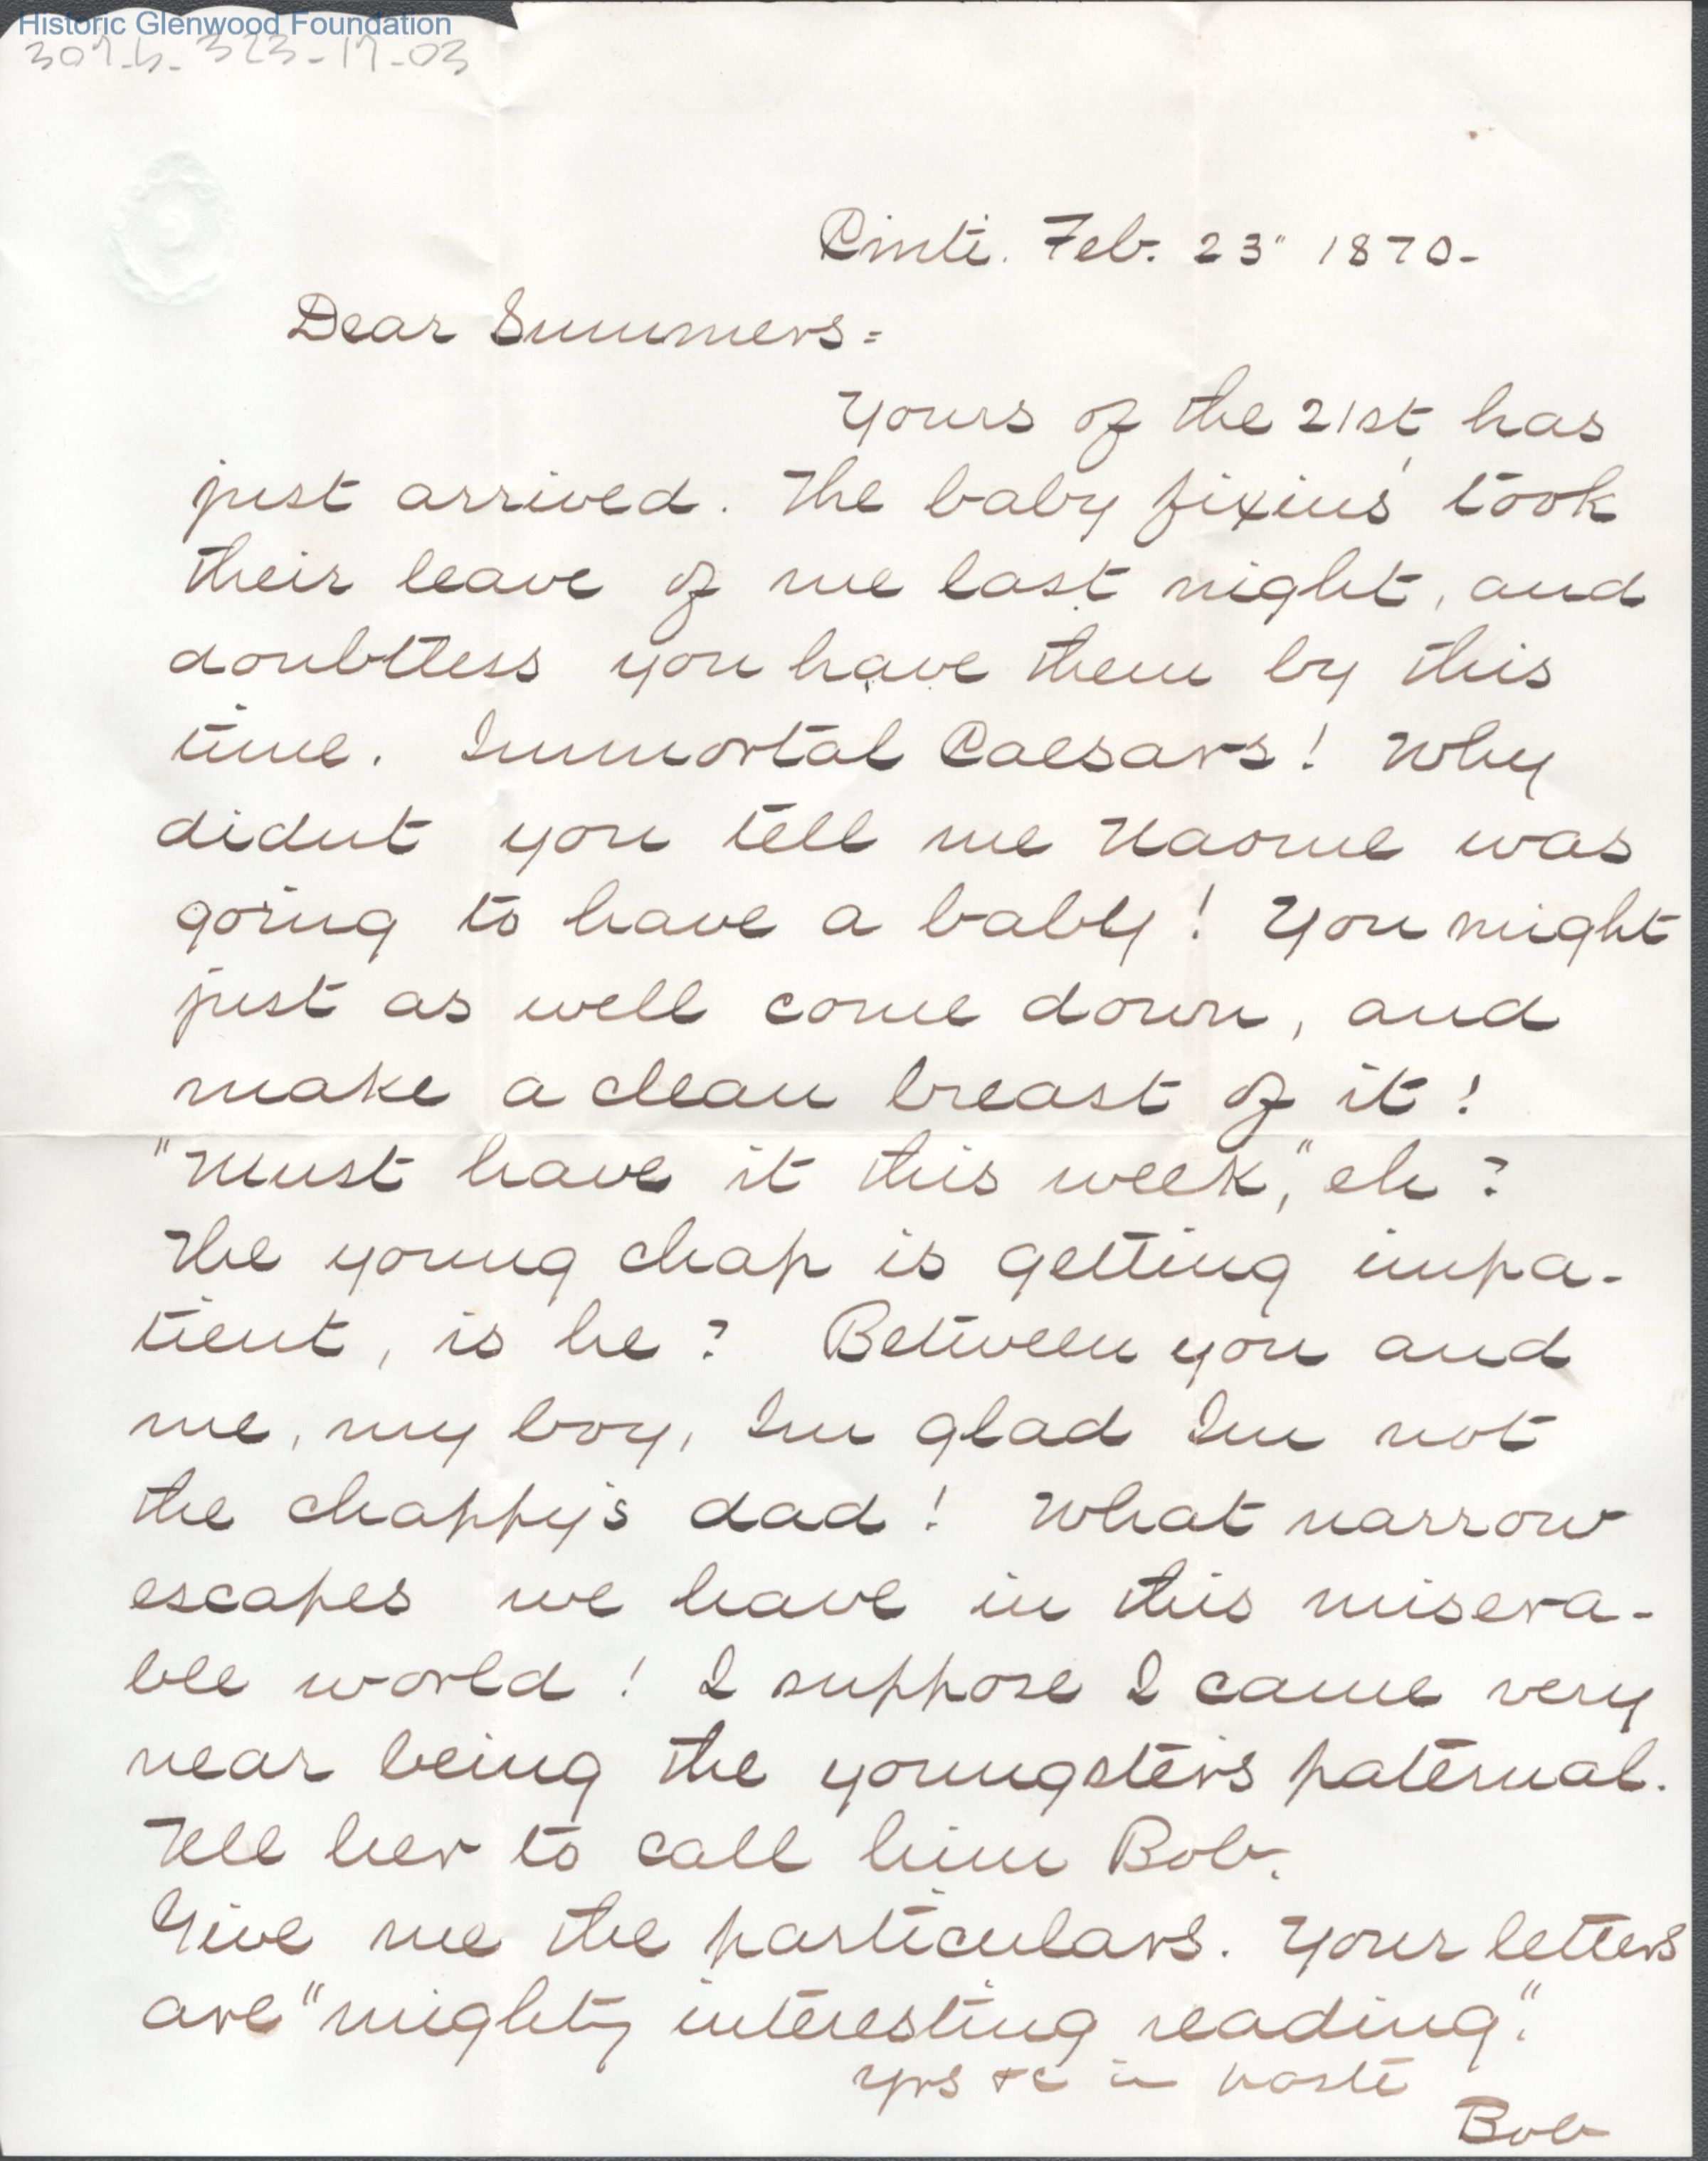 Historic Glenwood Foundation
307-b-323-17-03
Cinti. Feb. 23" 1870-
Dear Summers=
Yours of the 21st has
just arrived. The baby fixins' took
their leave of me last night, and
doubttess you have them by this
time. Immortal Caesars! Why
didnt you tell me Naome was
going to have a baby! You might
just as well come down, and
make a clean breast of it!
"Must have it this week," eh?
The young chap is getting impa-
tient, is he? Between you and
me, my boy, Im glad Im not
the chappy's dad! What narrow
escapes we have in this misera-
ble world! I suppose I came very
near being the youngsters paternal.
Tell her to call him Bob.
Give me the particulars. Your letters
are "mighty interesting reading".
Yrs &c in haste
Bob